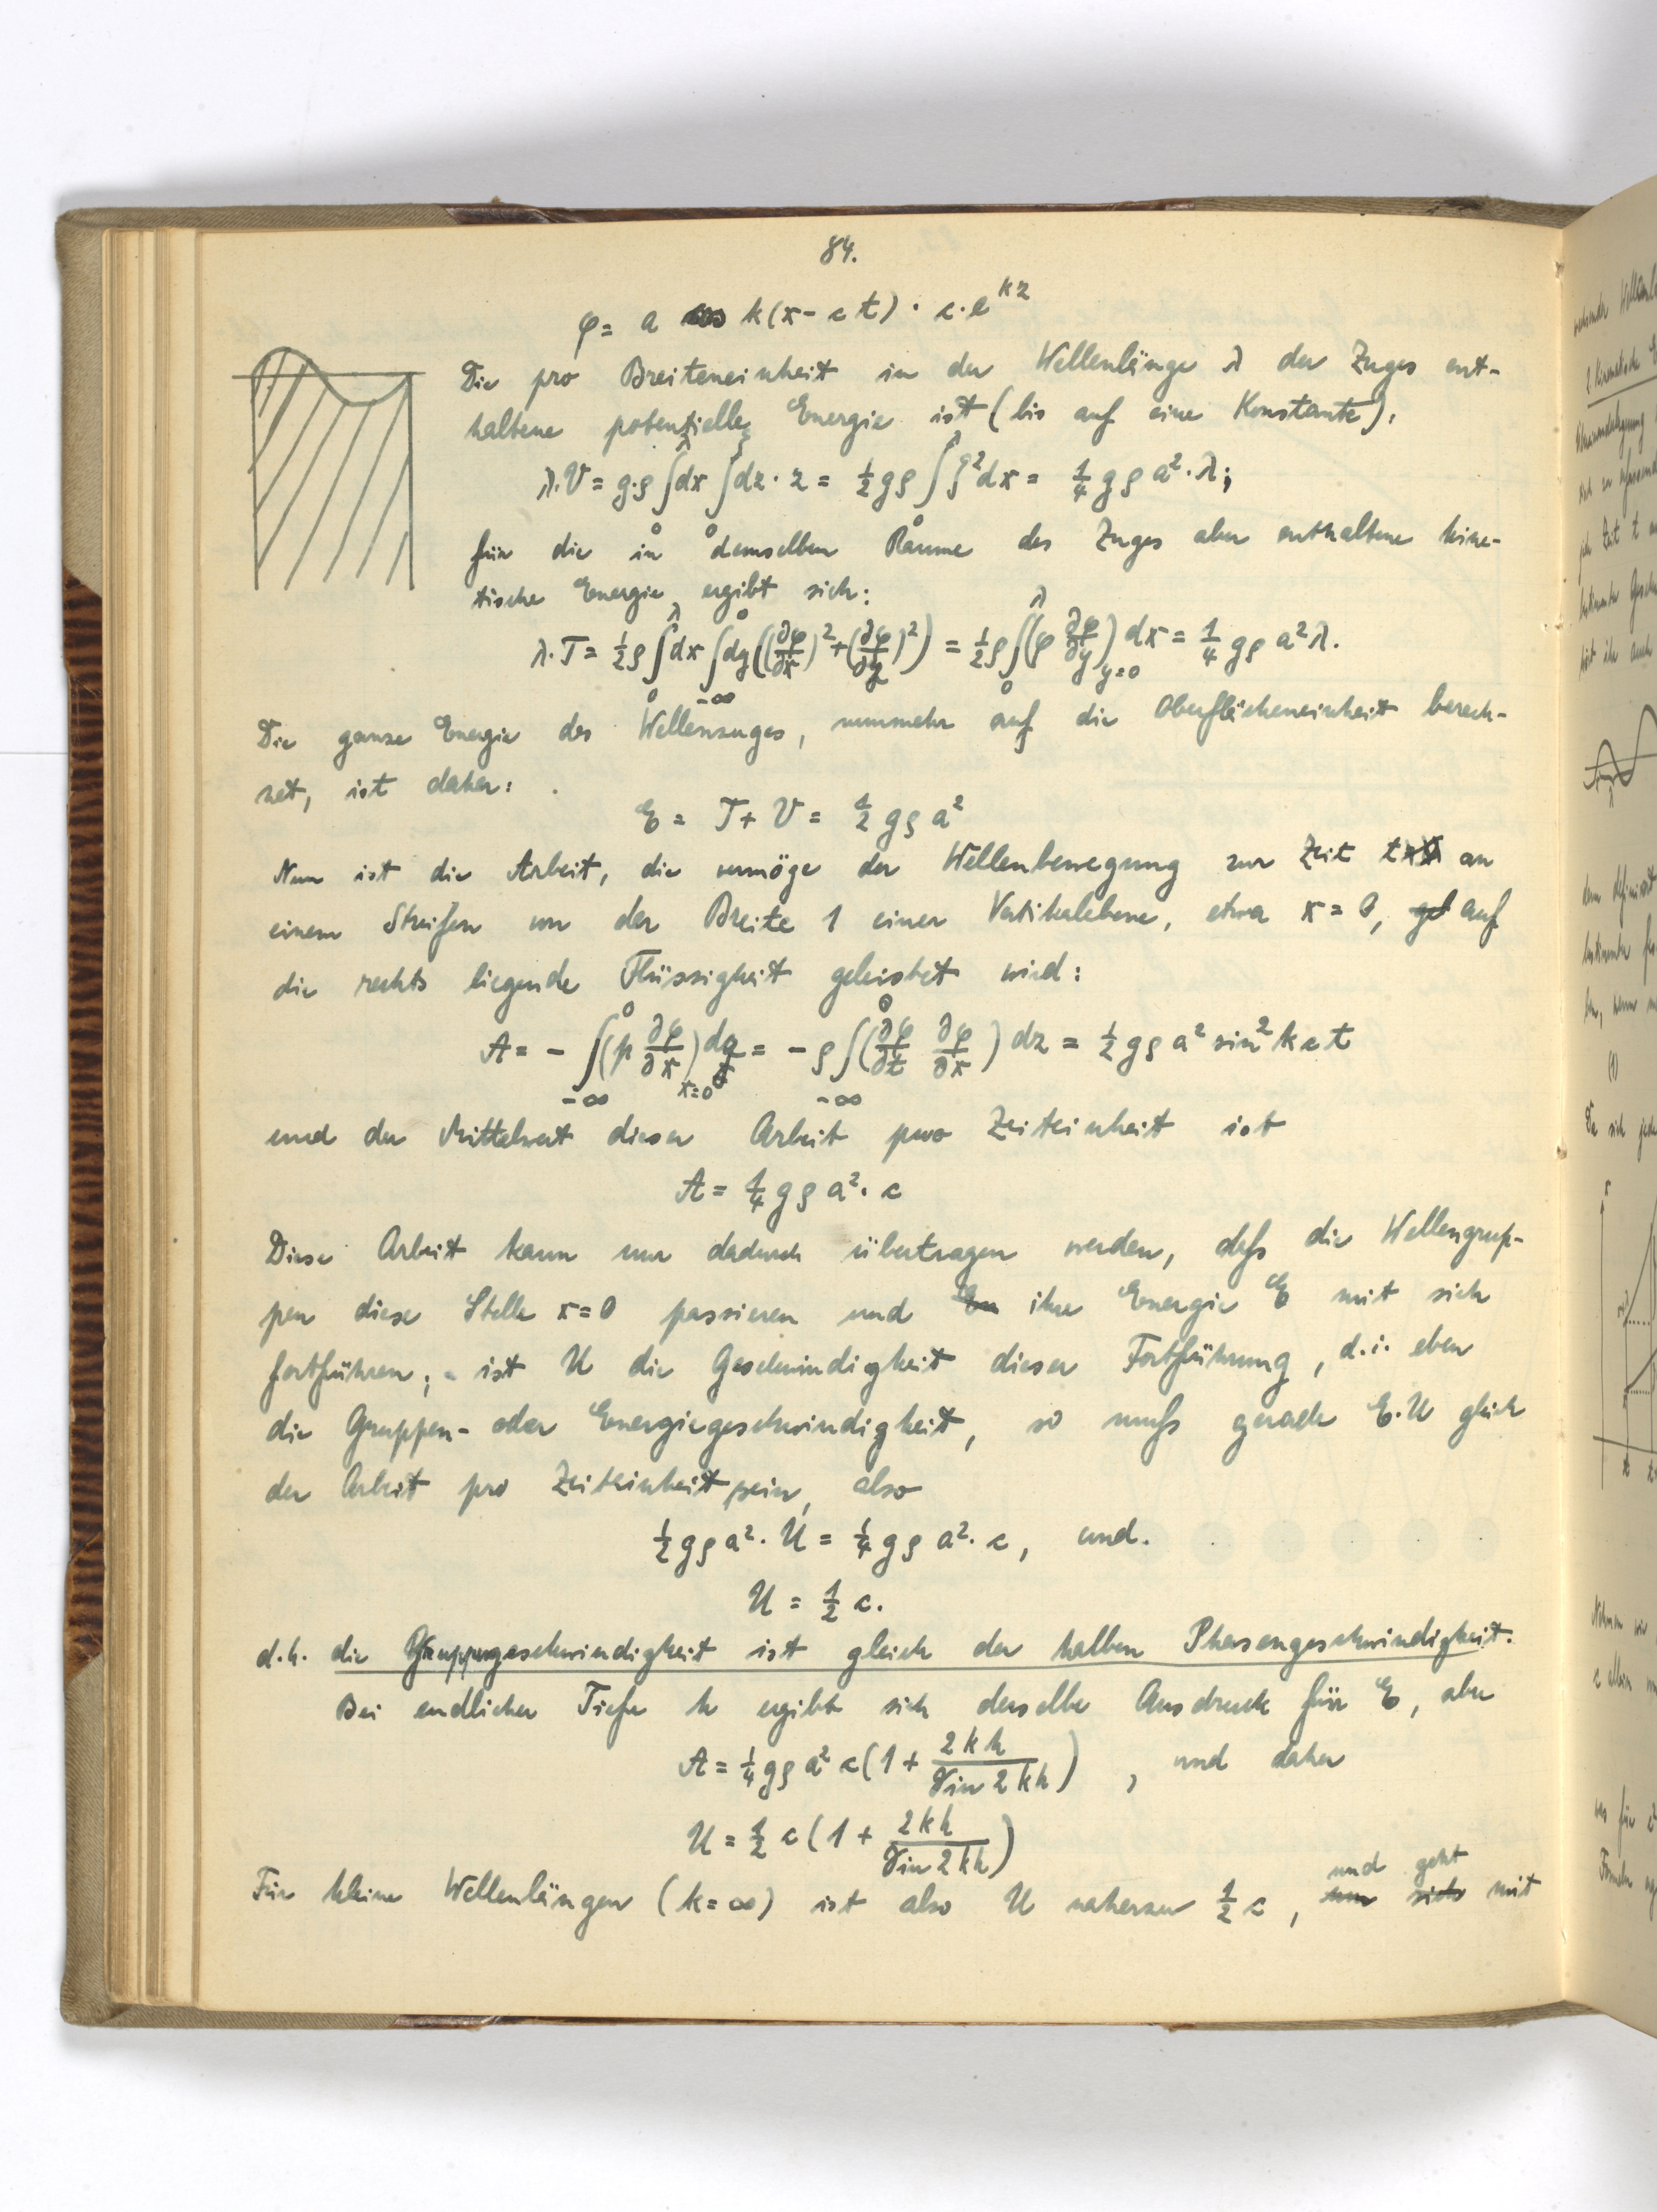 84.
φ = a cos k(x - ct) · c · e^{kz}
Die pro Breiteneinheit in der Wellenlänge λ des Zuges ent-
haltene potentielle Energie ist (bis auf eine Konstante):
λ·V = g·ρ ∫_0^λ dx ∫_0^ζ dz · z = ½ gρ ∫_0^λ ζ² dx = ¼ gρ a² · λ;
für die in demselben Raume des Zuges aber enthaltene kine-
tische Energie ergibt sich:
λ·T = ½ ρ ∫_0^λ dx ∫_{-∞}^0 dy ((∂φ/∂x)² + (∂φ/∂y)²) = ½ ρ ∫_0^λ (φ ∂φ/∂y)_{y=0} dx = ¼ gρ a² λ.
Die ganze Energie des Wellenzuges, nunmehr auf die Oberflächeneinheit berech-
net, ist daher:
E = T + V = ½ gρ a²
Nun ist die Arbeit, die vermöge der Wellenbewegung zur Zeit t an
einem Streifen von der Breite 1 einer Vertikalebene, etwa x = 0, auf
die rechts liegende Flüssigkeit geleistet wird:
A = - ∫_{-∞}^0 (p ∂φ/∂x)_{x=0} dz = - ρ ∫_{-∞}^0 (∂φ/∂t ∂φ/∂x) dz = ½ gρ a² sin² kct
und der Mittelwert dieser Arbeit pro Zeiteinheit ist
A = ¼ gρ a² · c
Diese Arbeit kann nur dadurch übertragen werden, daß die Wellengrup-
pen diese Stelle x=0 passieren und ihre Energie E mit sich
fortführen; - ist U die Geschwindigkeit dieser Fortführung, d.i. eben
die Gruppen- oder Energiegeschwindigkeit, so muß gerade E·U gleich
der Arbeit pro Zeiteinheit sein, also
½ gρ a² · U = ¼ gρ a² · c, und.
U = ½ c.
d.h. die Gruppengeschwindigkeit ist gleich der halben Phasengeschwindigkeit.
Bei endlicher Tiefe h ergibt sich derselbe Ausdruck für E, aber
A = ¼ gρ a² c (1 + 2kh/Sin 2kh), und daher
U = ½ c (1 + 2kh/Sin 2kh)
Für kleine Wellenlängen (k=∞) ist also U nahezu ½ c, und geht mit